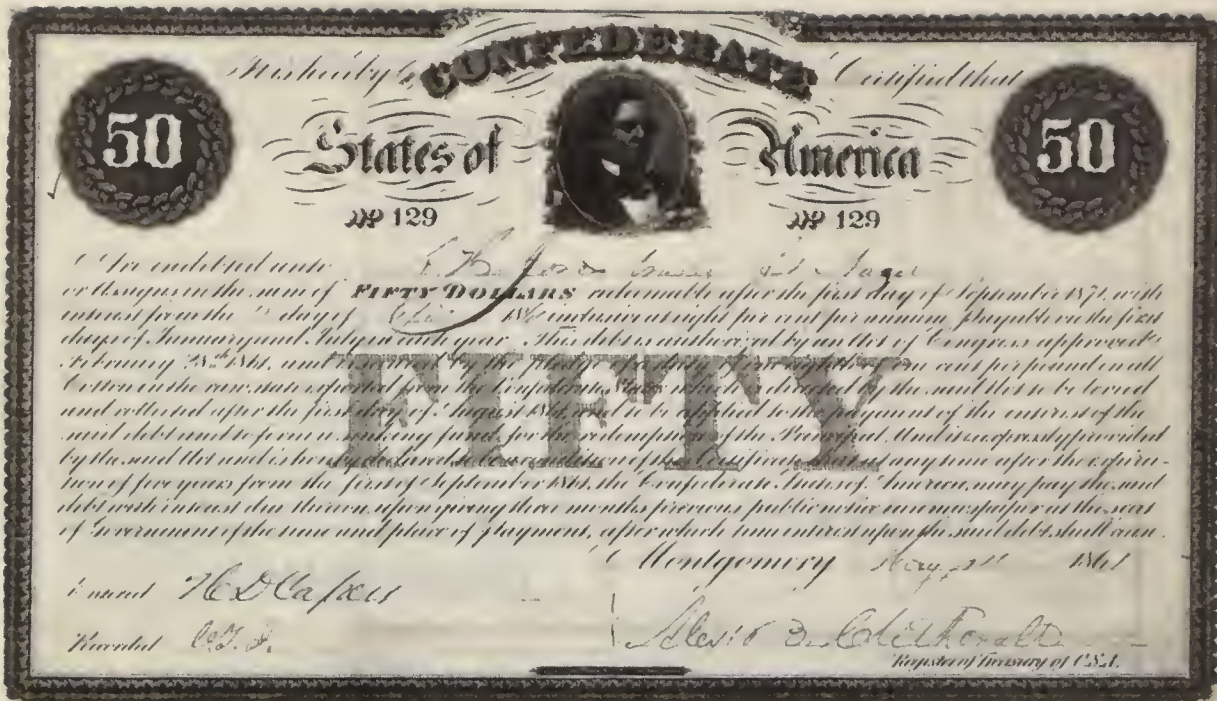 It is hereby CONFEDERATE Certified that
50 States of America 50
No 129 No 129
Are indebted unto
or Assigns in the sum of FIFTY DOLLARS redeemable after the first day of September 1871, with
interest from the day of 186 inclusive at eight per cent per annum, payable on the first
days of January and July in each year. This debt is authorized by an Act of Congress approved
February 28th 1861, and cent per pound on all
Cotton in the raw state exported from the Confederate States, which is directed by the said Act to be levied
and collected after the first day of August 1861, and to be applied to the payment of the interest of the
said debt and to form a sinking fund for the redemption of the Principal. And it is expressly provided
by the said Act and is hereby declared Certificate, that at any time after the expira-
tion of five years from the first of September 1861, the Confederate States of America, may pay the said
debt with interest due thereon, upon giving three months previous public notice in a newspaper at the seat
of Government of the time and place of payment, after which time interest upon the said debt shall cease.
FIFTY
Montgomery May 1861
Entered H D Capers
Recorded
Register of Treasury of C.S.A.